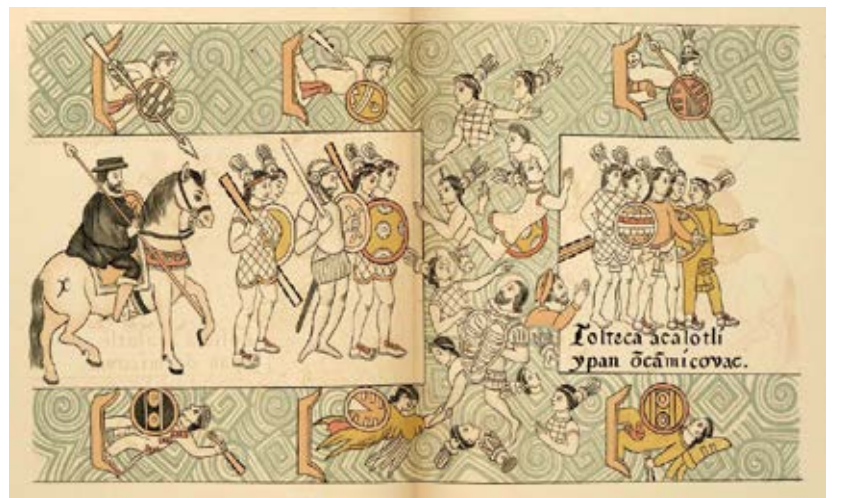 Tolteca acalotli
ypan õcãmicovac.